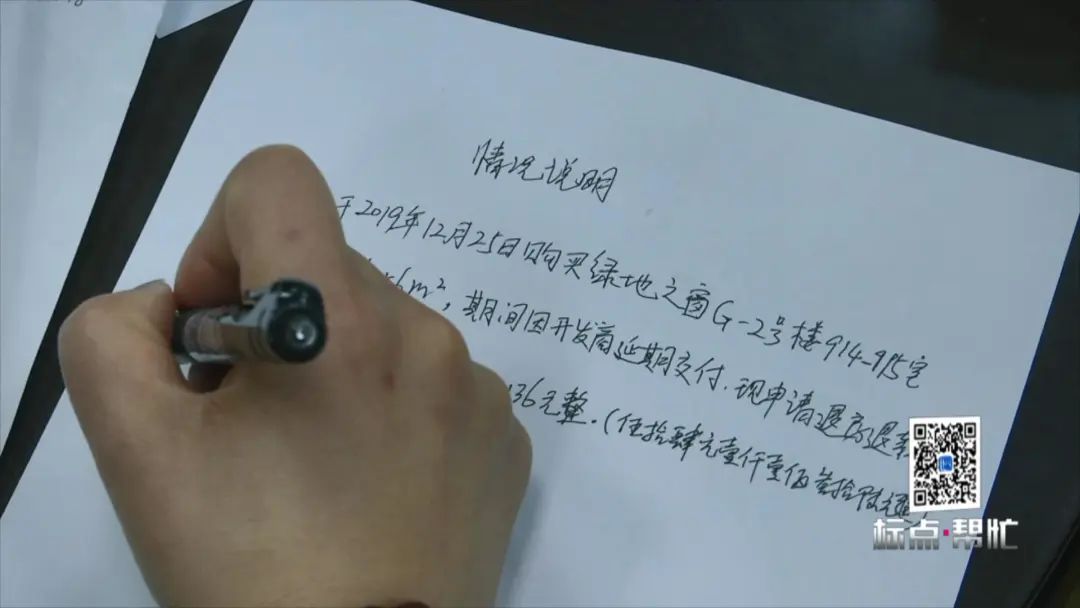 情况说明
于2019年12月25日购买绿地之窗G-2号楼914-915室
6m²,期间因开发商延期交付.现申请退房退
136元整.(伍拾肆元壹仟壹佰叁拾陆元整
标点·帮忙